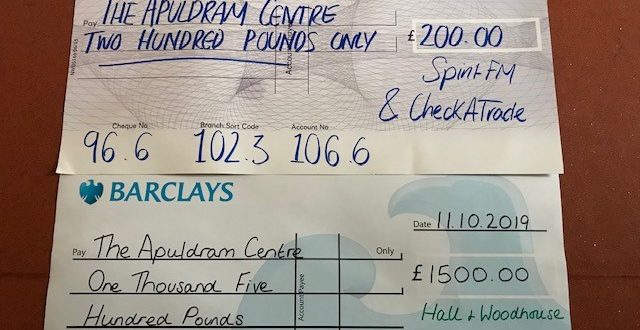 Pay THE APULDRAM CENTRE
TWO HUNDRED POUNDS ONLY £ 200.00
Account Payee
Spirit FM
& CheckATrade
Cheque No Branch Sort Code Account No
96.6 102.3 106.6
BARCLAYS
Date 11.10.2019
Pay The Apuldram Centre Only
One Thousand Five £1500.00
Account Payee
Hundred Pounds Hall & Woodhouse